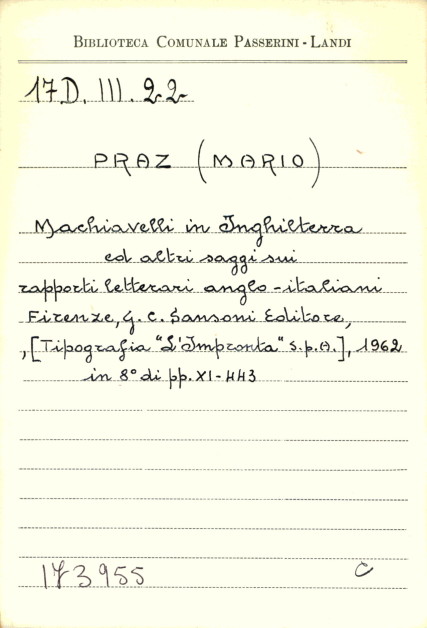 BIBLIOTECA COMUNALE PASSERINI - LANDI
17D. III. 22
PRAZ (MARIO)
Machiavelli in Inghilterra
ed altri saggi sui
rapporti letterari anglo-italiani
Firenze, G. C. Sansoni Editore,
,[Tipografia "L'Impronta" S.p.A.], 1962
in 8° di pp. XI-443
173955 C